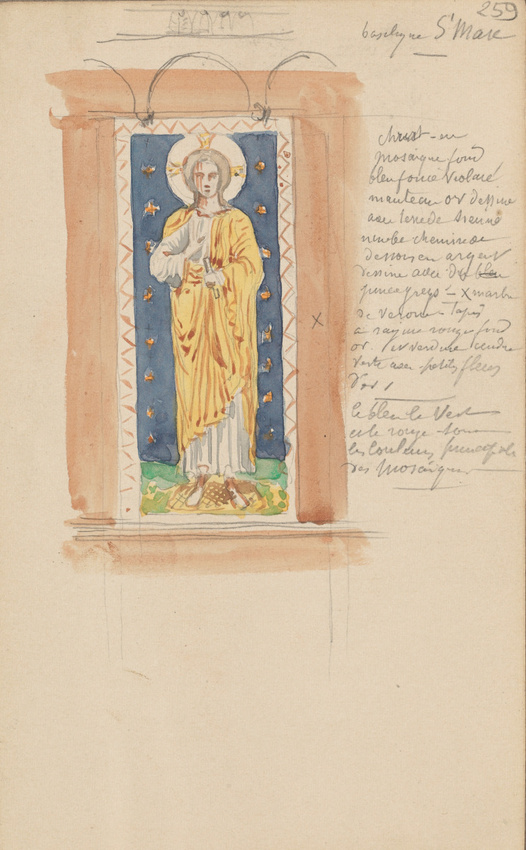 259
basilique St Marc
Christ en
mosaique fond
bleu foncé violacé
manteau or dessiné
avec terre de sienne
nimbe chemise de
dessous en argent
dessiné avec du bleu
gris - x marbre
de Verone -
à rouge fond
or. verdure tendre
verte avec petites fleurs
d'or /
le bleu le vert
et le rouge sont
les couleurs principales
des mosaiques
x